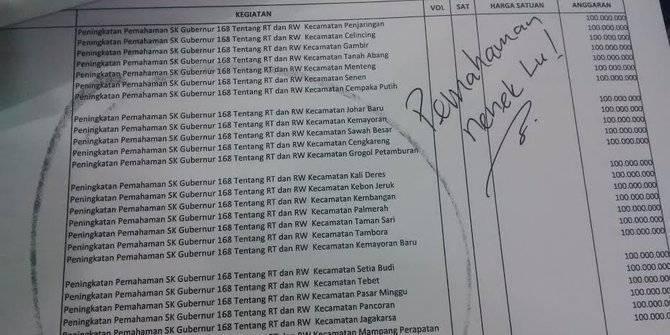 KEGIATAN VOL SAT HARGA SATUAN ANGGARAN
Peningkatan Pemahaman SK Gubernur 168 Tentang RT dan RW Kecamatan Penjaringan 100.000.000
Peningkatan Pemahaman SK Gubernur 168 Tentang RT dan RW Kecamatan Celincing 100.000.000
Peningkatan Pemahaman SK Gubernur 168 Tentang RT dan RW Kecamatan Gambir 100.000.000
Peningkatan Pemahaman SK Gubernur 168 Tentang RT dan RW Kecamatan Tanah Abang 100.000.000
Peningkatan Pemahaman SK Gubernur 168 Tentang RT dan RW Kecamatan Menteng 100.000.000
Peningkatan Pemahaman SK Gubernur 168 Tentang RT dan RW Kecamatan Senen 100.000.000
Peningkatan Pemahaman SK Gubernur 168 Tentang RT dan RW Kecamatan Cempaka Putih
Peningkatan Pemahaman SK Gubernur 168 Tentang RT dan RW Kecamatan Johar Baru 100.000.000
Peningkatan Pemahaman SK Gubernur 168 Tentang RT dan RW Kecamatan Kemayoran 100.000.000
Peningkatan Pemahaman SK Gubernur 168 Tentang RT dan RW Kecamatan Sawah Besar 100.000.000
Peningkatan Pemahaman SK Gubernur 168 Tentang RT dan RW Kecamatan Cengkareng 100.000.000
Peningkatan Pemahaman SK Gubernur 168 Tentang RT dan RW Kecamatan Grogol Petamburan 100.000.000
Pemahaman
nenek Lu!
Peningkatan Pemahaman SK Gubernur 168 Tentang RT dan RW Kecamatan Kali Deres 100.000.000
Peningkatan Pemahaman SK Gubernur 168 Tentang RT dan RW Kecamatan Kebon Jeruk 100.000.000
Peningkatan Pemahaman SK Gubernur 168 Tentang RT dan RW Kecamatan Kembangan 100.000.000
Peningkatan Pemahaman SK Gubernur 168 Tentang RT dan RW Kecamatan Palmerah 100.000.000
Peningkatan Pemahaman SK Gubernur 168 Tentang RT dan RW Kecamatan Taman Sari 100.000.000
Peningkatan Pemahaman SK Gubernur 168 Tentang RT dan RW Kecamatan Tambora 100.000.000
Peningkatan Pemahaman SK Gubernur 168 Tentang RT dan RW Kecamatan Kemayoran Baru 100.000.000
Peningkatan Pemahaman SK Gubernur 168 Tentang RT dan RW Kecamatan Setia Budi 100.000.000
Peningkatan Pemahaman SK Gubernur 168 Tentang RT dan RW Kecamatan Tebet 100.000.000
Peningkatan Pemahaman SK Gubernur 168 Tentang RT dan RW Kecamatan Pasar Minggu 100.000.000
Peningkatan Pemahaman SK Gubernur 168 Tentang RT dan RW Kecamatan Pancoran 100.000.000
Peningkatan Pemahaman SK Gubernur 168 Tentang RT dan RW Kecamatan Jagakarsa 100.000.000
Pemahaman SK Gubernur 168 Tentang RT dan RW Kecamatan Mampang Perapatan